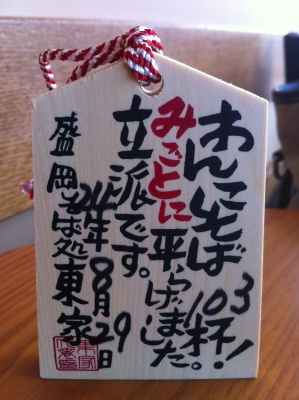 わんこそば103杯!
みごとに平らげました。
立派です。
24年8月29日
盛岡そば処東家